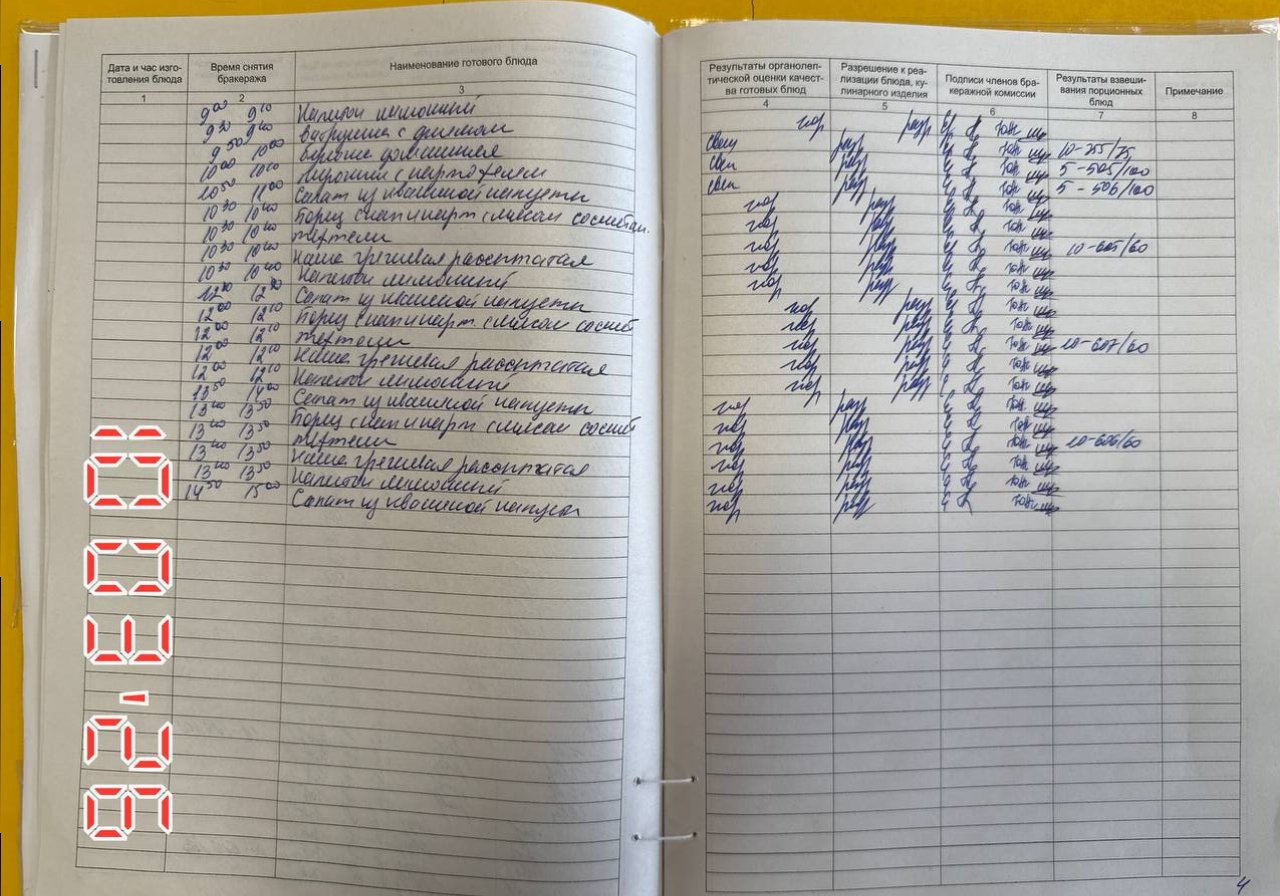 Дата и час изго-
товления блюда
Время снятия
бракеража
Наименование готового блюда
1 2 3
9⁰⁰ 9¹⁰ Напиток лимонный
9³⁰ 9⁴⁰ Ватрушка с джемом
9⁵⁰ 10⁰⁰ Верошка домашняя
10⁰⁰ 10¹⁰ Пирожки с картофелем
10⁵⁰ 11⁰⁰ Салат из квашеной капусты
10³⁰ 10⁴⁰ Борщ с кап и карт с мясом со сметан.
10³⁰ 10⁴⁰
10³⁰ 10⁴⁰ Каша гречневая рассыпчатая
10³⁰ 10⁴⁰ Напиток лимонный
Салат из квашеной капусты
12⁰⁰ 12¹⁰ Борщ с кап и карт. с мясом со смет
12⁰⁰ 12¹⁰
12⁰⁰ 12¹⁰ Каша гречневая рассыпчатая
12⁰⁰ 12¹⁰ Напиток лимонный
13⁵⁰ 14⁰⁰ Салат из квашеной капусты
13⁴⁰ 13⁵⁰ Борщ с кап и карт с мясом со смет
13⁴⁰ 13⁵⁰
13⁴⁰ 13⁵⁰ Каша гречневая рассыпчатая
13⁴⁰ 13⁵⁰ Напиток лимонный
14⁵⁰ 15⁰⁰ Салат из квашеной капусты
Результаты органолеп-
тической оценки качест-
ва готовых блюд
Разрешение к реа-
лизации блюда, ку-
линарного изделия
Подписи членов бра-
керажной комиссии
Результаты взвеши-
вания порционных
блюд
Примечание
4 5 6 7 8
хор разр
свеж разр 10-255/75
свеж разр 5-505/100
свеж разр 5-506/100
хор разр
хор разр
хор разр 10-605/60
хор разр
хор разр
хор разр
хор разр
хор разр 10-607/60
хор разр
хор разр
хор разр
хор разр
хор разр 10-606/60
хор разр
хор разр
хор разр
4